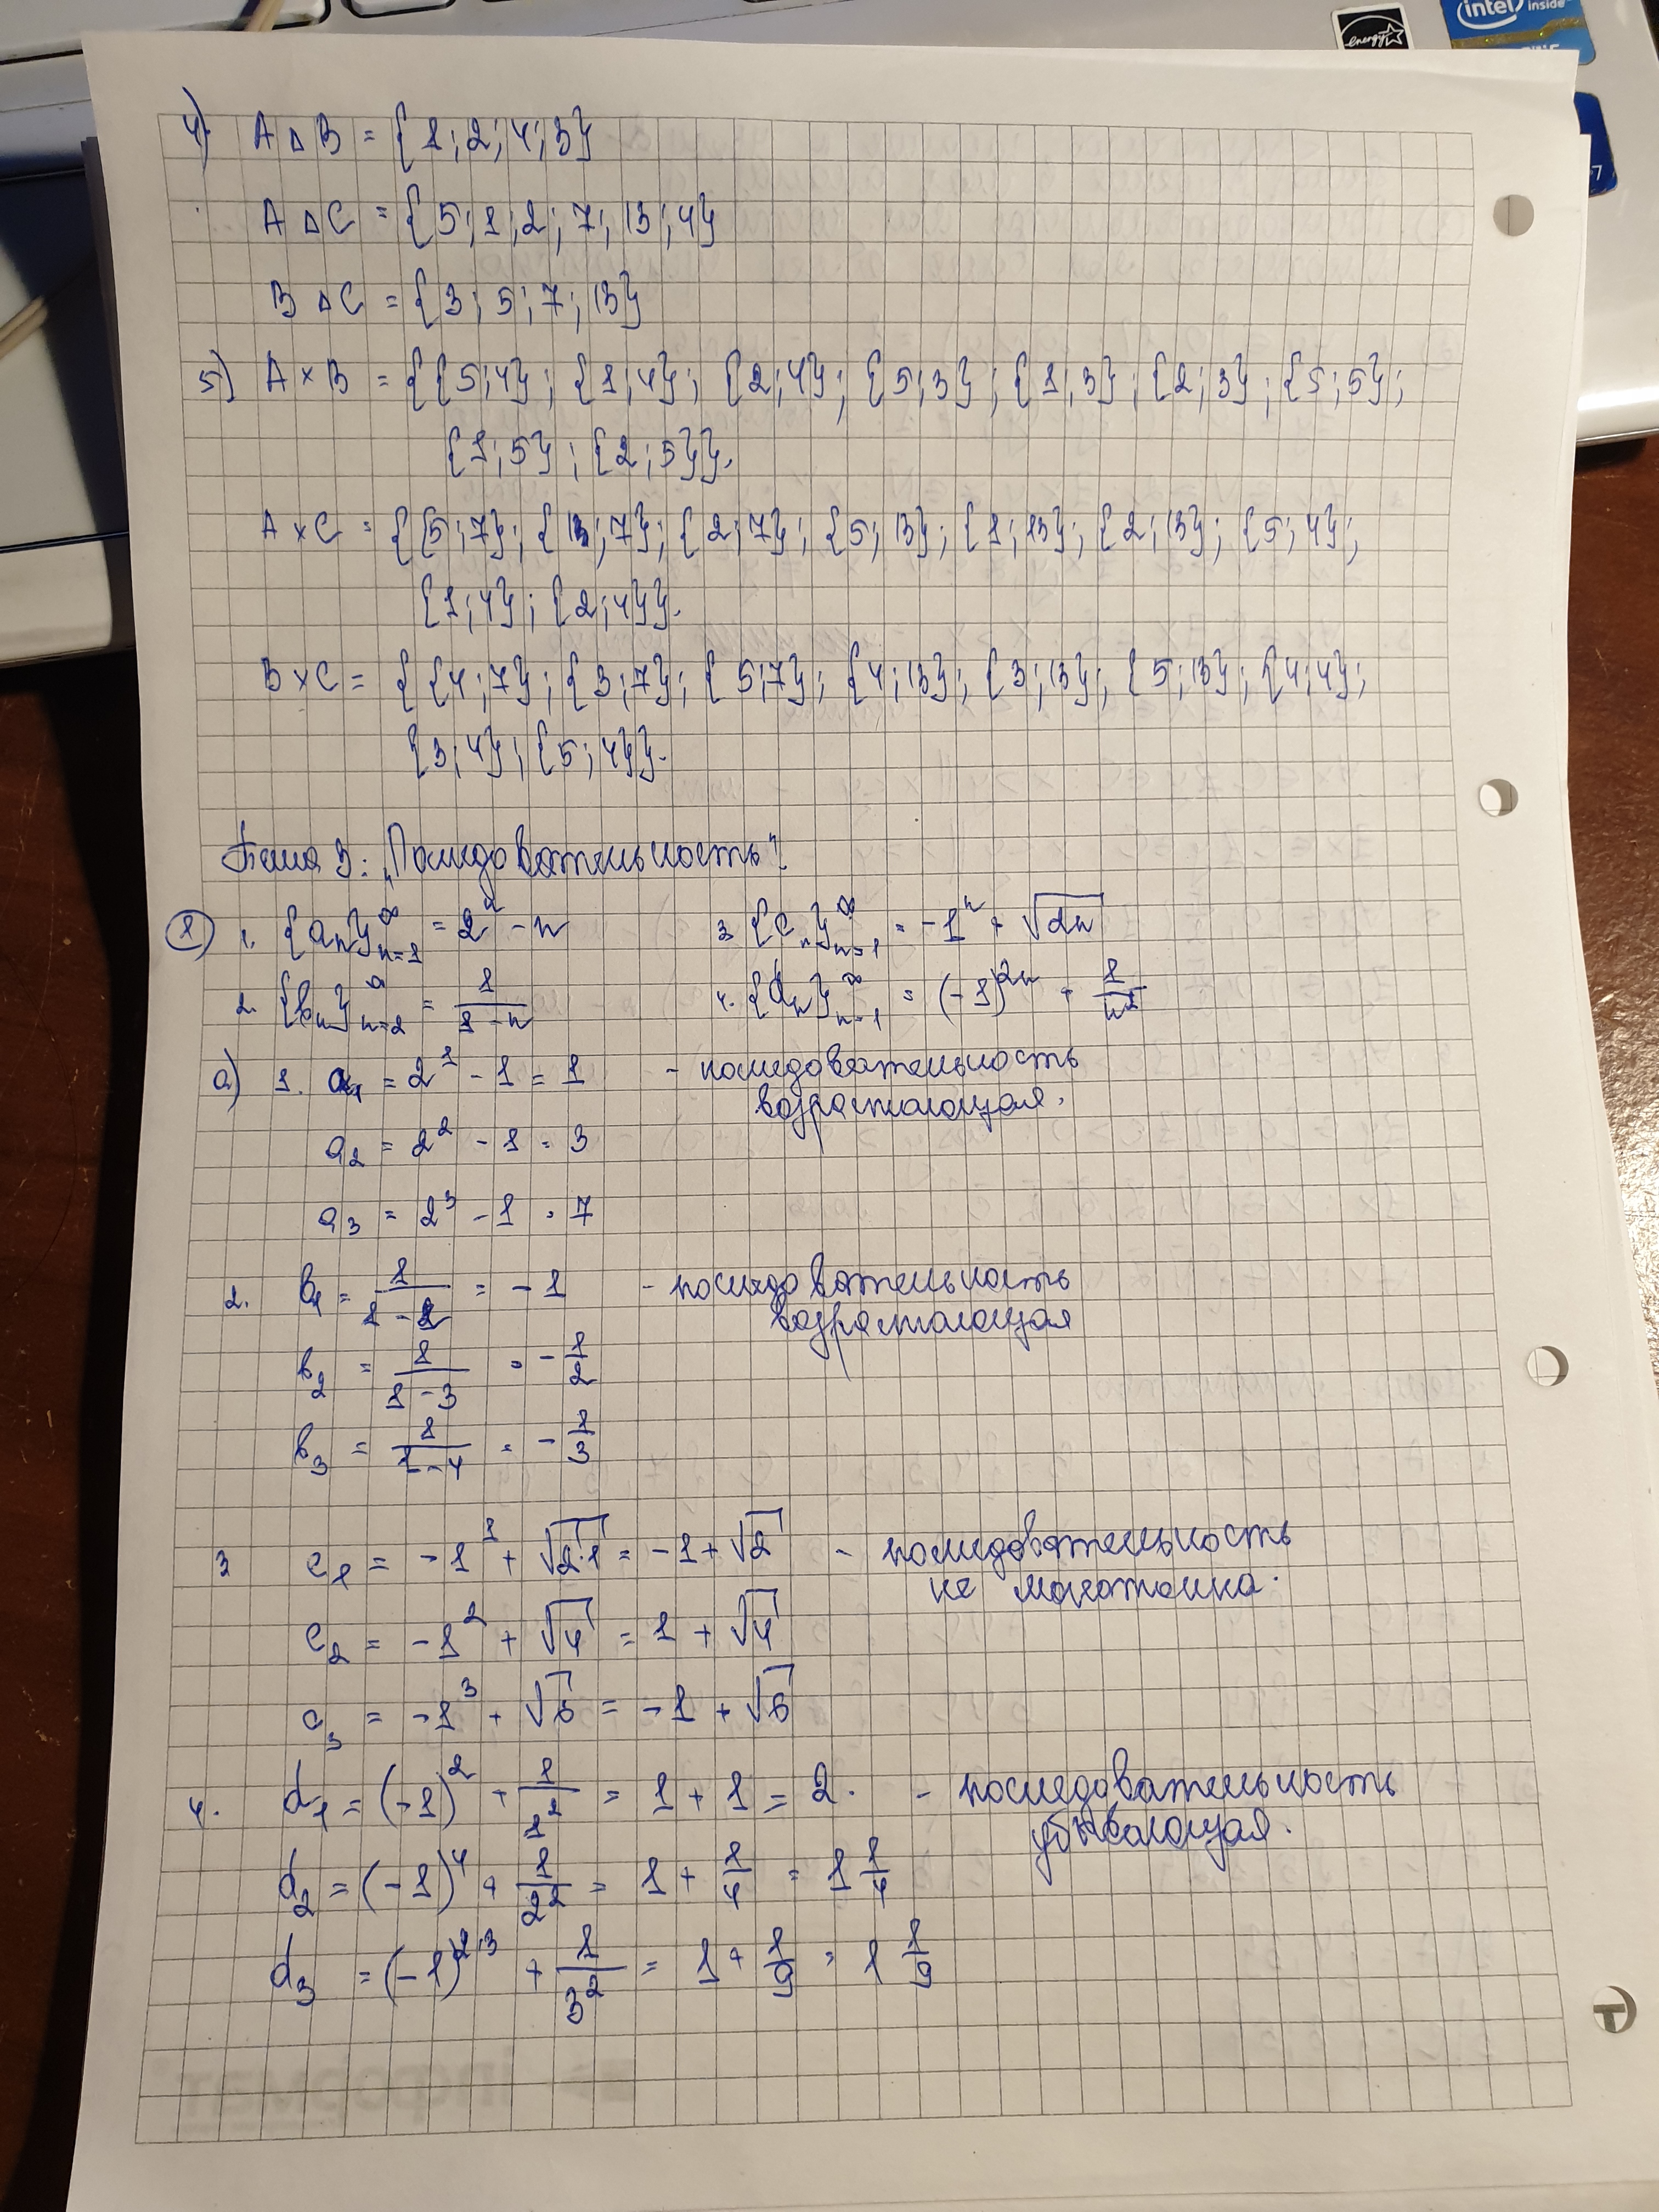 4) A △ B = {1; 2; 4; 3}
A △ C = {5; 1; 2; 7; 13; 4}
B △ C = {3; 5; 7; 13}
5) A × B = {{5; 4}; {1; 4}; {2; 4}; {5; 3}; {1; 3}; {2; 3}; {5; 5};
{1; 5}; {2; 5}}.
A × C = {{5; 7}; {1; 7}; {2; 7}; {5; 13}; {1; 13}; {2; 13}; {5; 4};
{1; 4}; {2; 4}}.
B × C = {{4; 7}; {3; 7}; {5; 7}; {4; 13}; {3; 13}; {5; 13}; {4; 4};
{3; 4}; {5; 4}}.
Тема 3: „Последовательность".
① 1. {aₙ}ₙ₌₁^∞ = 2ⁿ - n
3. {cₙ}ₙ₌₁^∞ = -1ⁿ + √2n
2. {bₙ}ₙ₌₂^∞ = 1/(1-n)
4. {dₙ}ₙ₌₁^∞ = (-1)²ⁿ + 1/n²
a) 1. a₁ = 2¹ - 1 = 1 - последовательность
возрастающая.
a₂ = 2² - 1 = 3
a₃ = 2³ - 1 = 7
2. b₁ = 1/(1-2) = -1 - последовательность
возрастающая
b₂ = 1/(1-3) = -1/2
b₃ = 1/(1-4) = -1/3
3 c₁ = -1¹ + √2·1 = -1 + √2 - последовательность
не монотонна.
c₂ = -1² + √4 = 1 + √4
c₃ = -1³ + √6 = -1 + √6
4. d₁ = (-1)² + 1/1² = 1 + 1 = 2. - последовательность
убывающая.
d₂ = (-1)⁴ + 1/2² = 1 + 1/4 = 1 1/4
d₃ = (-1)²·³ + 1/3² = 1 + 1/9 = 1 1/9
energy
intel inside
інформат